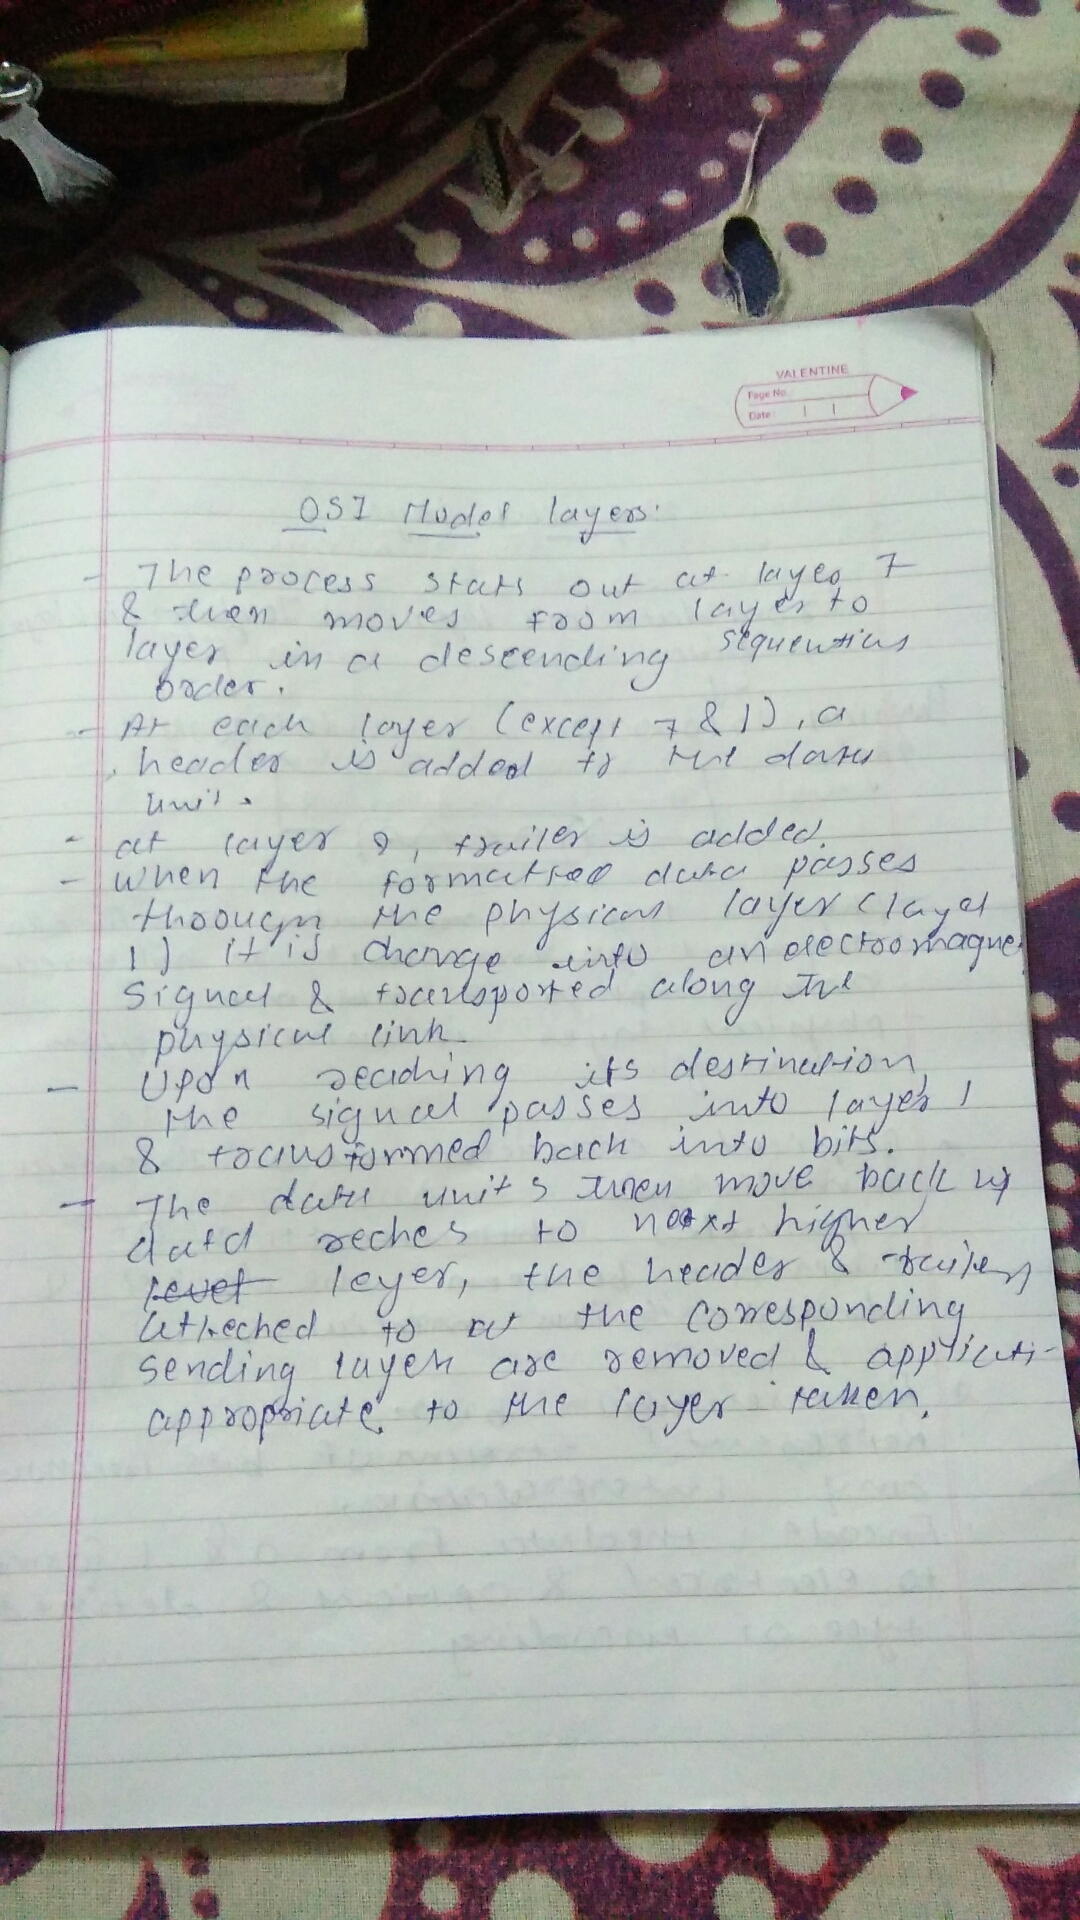 VALENTINE
Page No.
Date:
OSI Model layers.
- The process stats out at layer 7
& then moves from layer to
layer in a descending sequential
order.
- At each layer (except 7 & 1), a
header is added to the data
unit.
- at layer 2, trailer is added.
- When the formatted data passes
through the physical layer (layer
1) it is change into an electromagne
Signal & transported along the
physical link.
- Upon reaching its destination
the signal passes into layer 1
& transformed back into bits.
- The data units then move back up
data reches to next higher
level leyer, the header & trailers
atteched to at the corresponding
sending layer are removed & applicati-
appropriate to the layer taken.